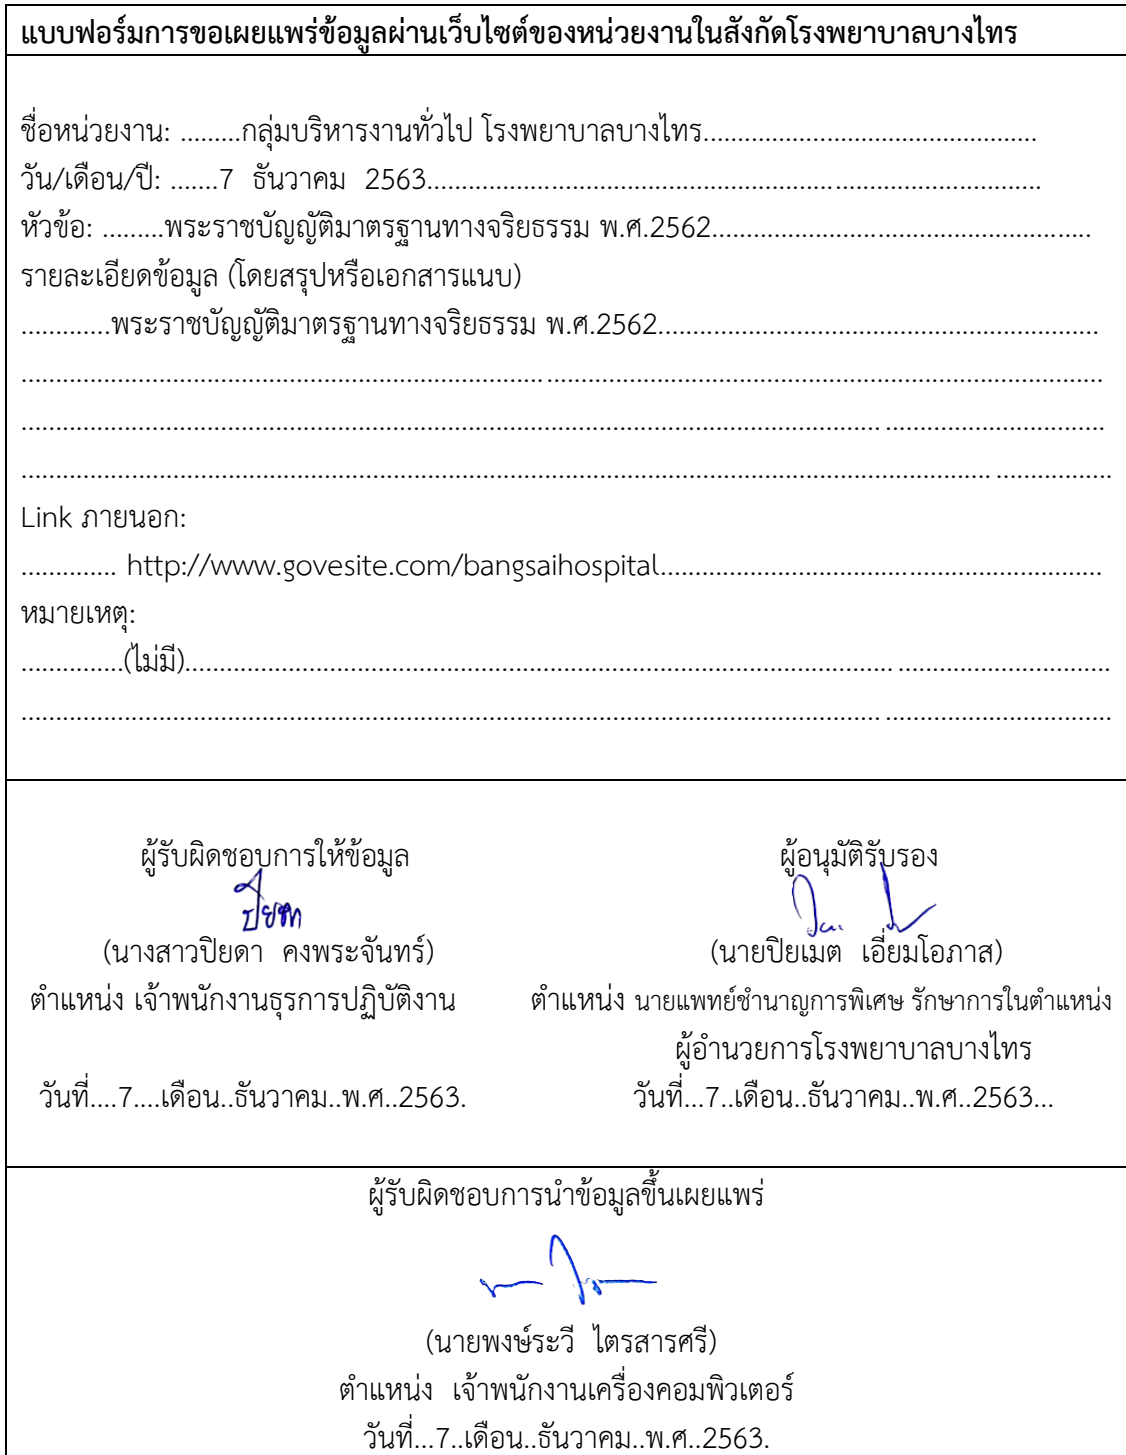 แบบฟอร์มการขอเผยแพร่ข้อมูลผ่านเว็บไซต์ของหน่วยงานในสังกัดโรงพยาบาลบางไทร
ชื่อหน่วยงาน: .........กลุ่มบริหารงานทั่วไป โรงพยาบาลบางไทร.................................................
วัน/เดือน/ปี: .......7 ธันวาคม 2563..........................................................................................
หัวข้อ: .........พระราชบัญญัติมาตรฐานทางจริยธรรม พ.ศ.2562.......................................................
รายละเอียดข้อมูล (โดยสรุปหรือเอกสารแนบ)
.............พระราชบัญญัติมาตรฐานทางจริยธรรม พ.ศ.2562................................................................
................................................................................................................................................................
................................................................................................................................................................
................................................................................................................................................................
Link ภายนอก:
.............. http://www.govesite.com/bangsaihospital................................................................
หมายเหตุ:
...............(ไม่มี)........................................................................................................................................
................................................................................................................................................................
ผู้รับผิดชอบการให้ข้อมูล ผู้อนุมัติรับรอง
ปิยดา
(นางสาวปิยดา คงพระจันทร์) (นายปิยเมต เอี่ยมโอภาส)
ตำแหน่ง เจ้าพนักงานธุรการปฏิบัติงาน ตำแหน่ง นายแพทย์ชำนาญการพิเศษ รักษาการในตำแหน่ง
ผู้อำนวยการโรงพยาบาลบางไทร
วันที่....7....เดือน..ธันวาคม..พ.ศ..2563. วันที่...7..เดือน..ธันวาคม..พ.ศ..2563...
ผู้รับผิดชอบการนำข้อมูลขึ้นเผยแพร่
(นายพงษ์ระวี ไตรสารศรี)
ตำแหน่ง เจ้าพนักงานเครื่องคอมพิวเตอร์
วันที่...7..เดือน..ธันวาคม..พ.ศ..2563.